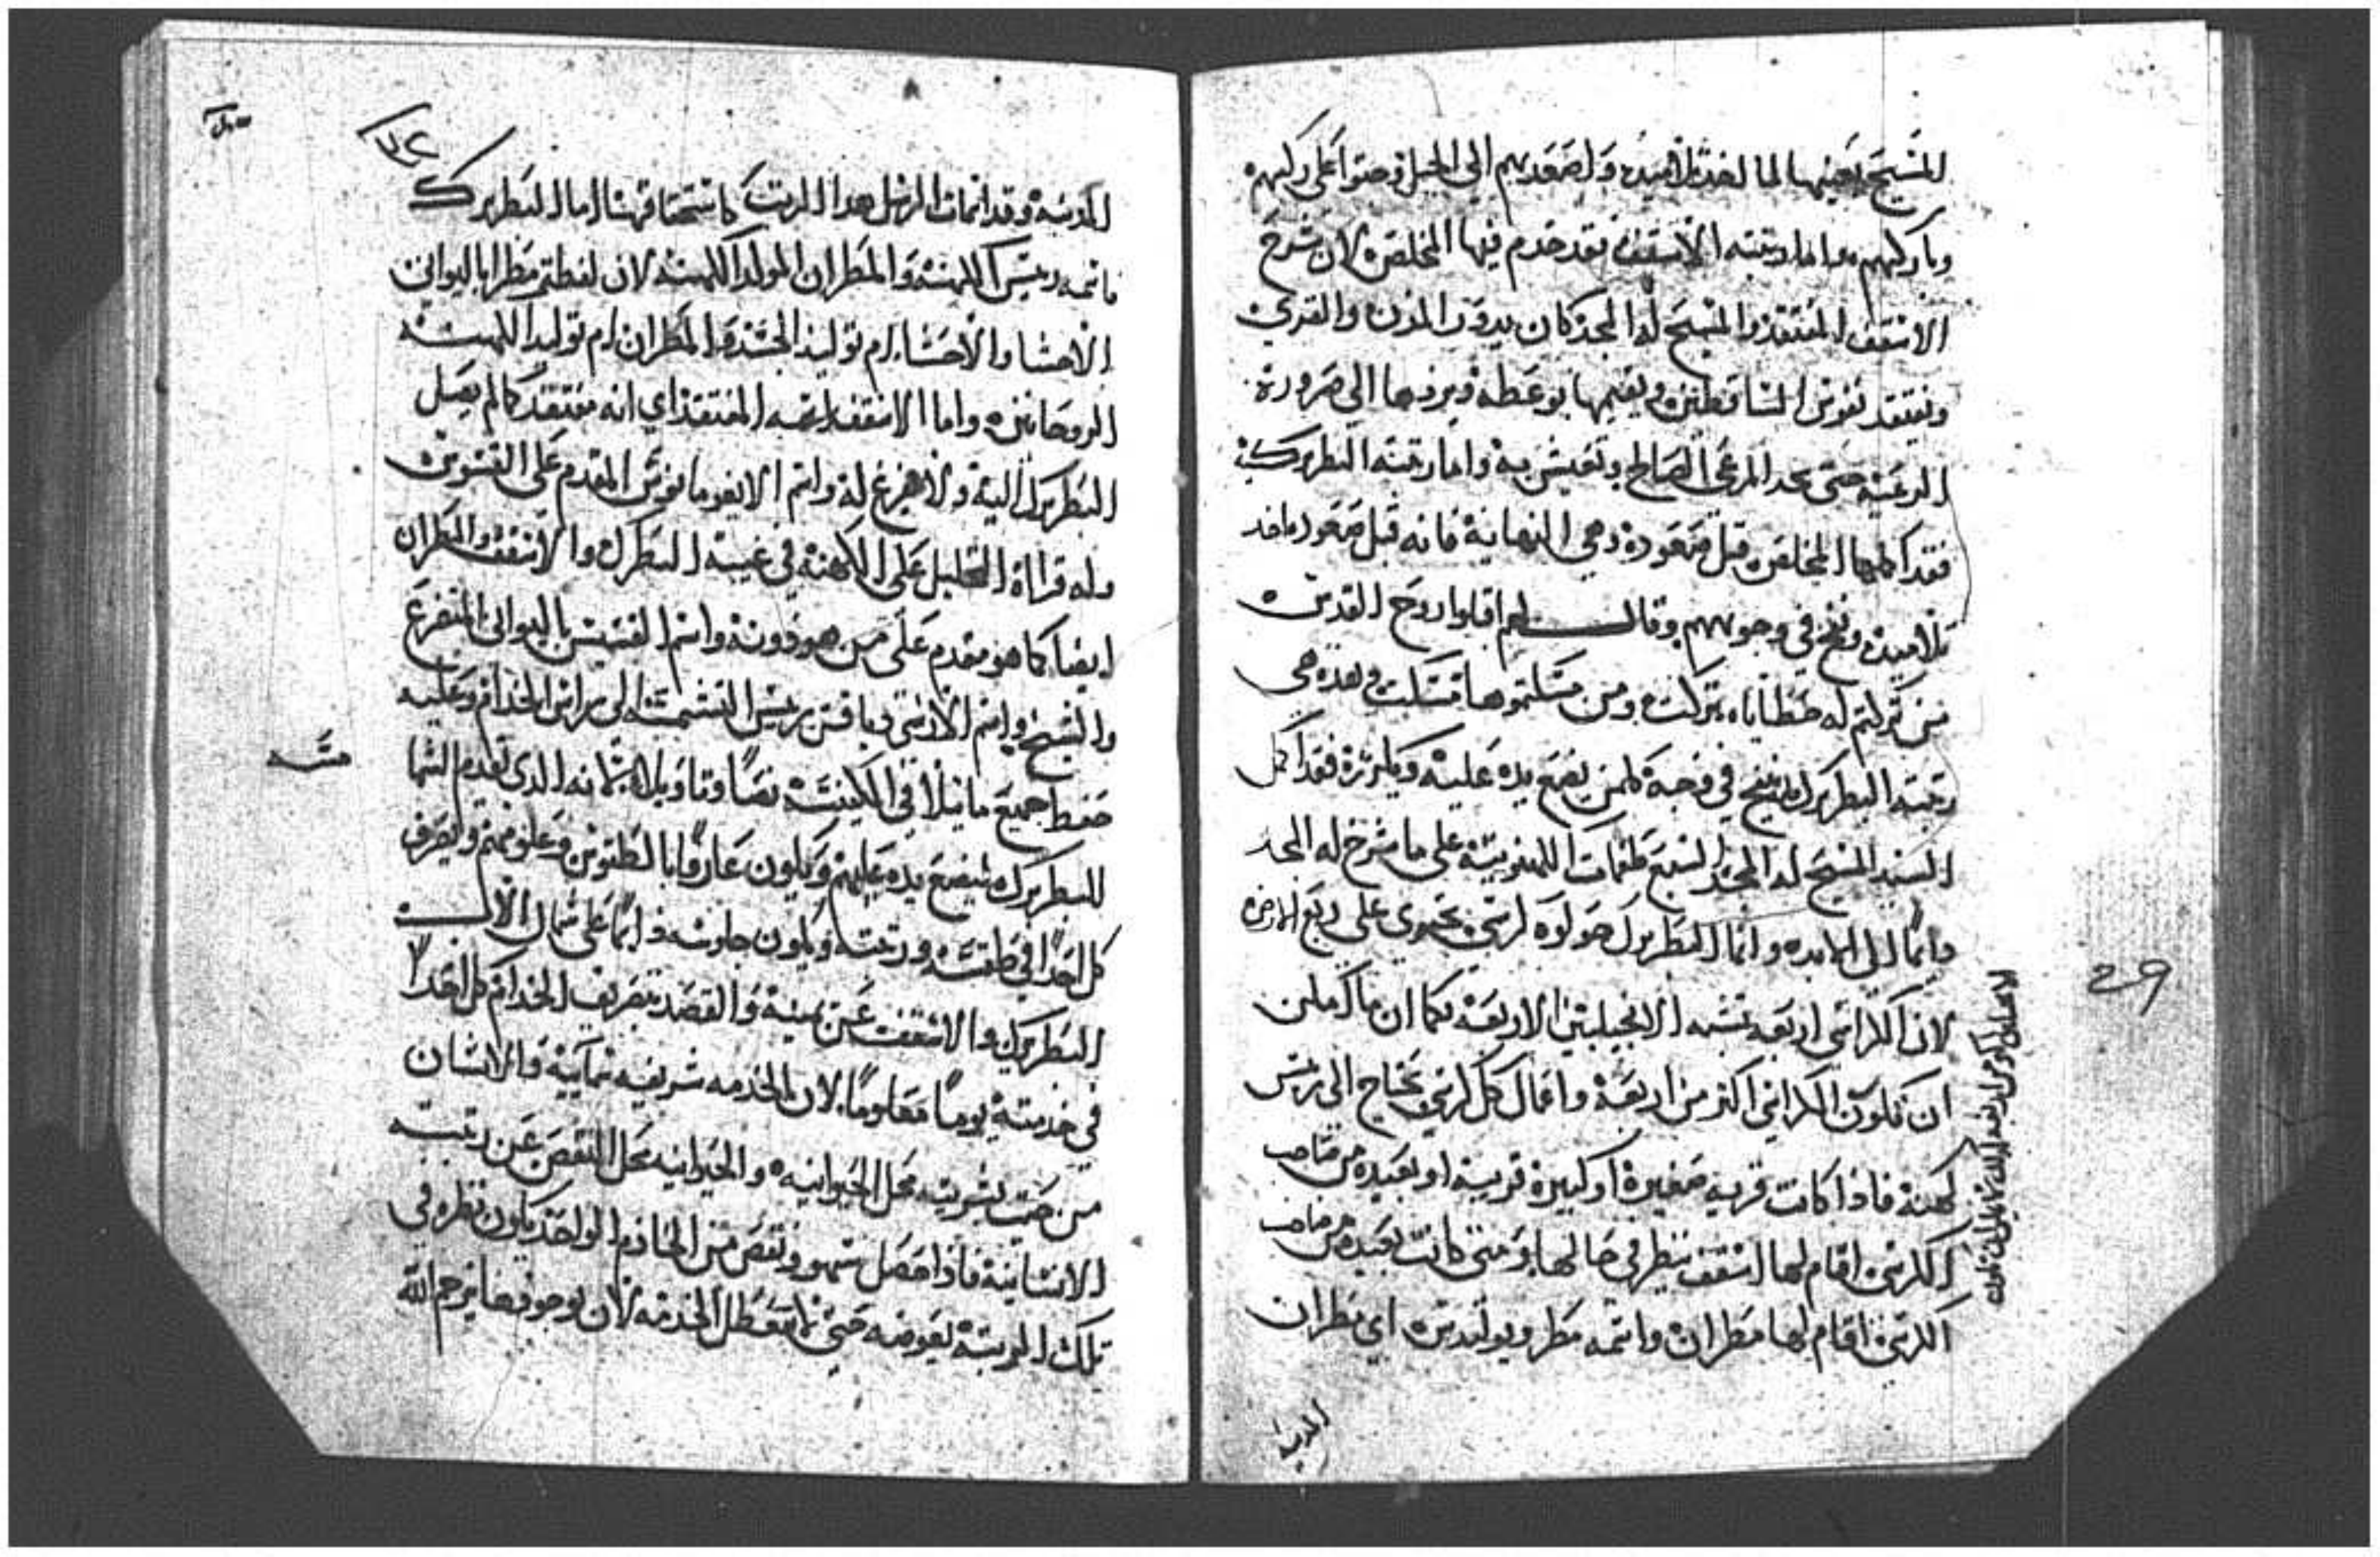 المسيح بعينها لما اخد تلاميده واصعدهم الى الجبل وحتوا على ركبهم
وباركهم واما رتبته الاسقف فقد خدم فيها المخلص لان شرح
الاسقف المفتقد والمسيح له المجد كان يدور المدن والقرى
ويفتقد نفوس الساقطين ويقيمها بوعظه ويردها الى صرورة
الرعيه حتى تجد المرعى الصالح وتعيش به واما رتبته البطريركيه
فقد اكملها المخلص قبل صعوده وهي النهاية فانه قبل صعوده اخد
تلاميده ونفخ في وجوههم وقال لهم اقبلوا روح القدس
من تركتم له خطاياه تركت ومن مسكتموها مسكت وهده هى
رتبة البطريرك ان ينفخ في وجه كلمن يضع يده عليه ويكرزة فقد اكمل
السيد المسيح له المجد السبع طغمات الكهنوتيه على ما شرح له المجد
دايما الى الابد واما البطريرك هو لوه كرسي يحتوى على ربع الارض
لان الكراسي اربعه تشبه الانجيليين الاربعة فكما ان ما يمكن
ان تكون الكراسي اكتر من اربعة واعمال كل كرسي تحتاج الى ريس
كهنة فاذا كانت قريه صغيرة او كبيرة قريبة او بعيده من صاحب
الكرسي اقام لها اسقف ينظر في حالها ومتى كانت بعيده من صاحب
الكرسي اقام لها مطران واسمه مطروبوليدس اى مطران
المدينه
29
المدينه وقد اتمات الرسل هدا المرتب باستحقاقهنا اما البطريرك
فاسمه ريس الكهنة والمطران المولد الكهنه لان لفظة مطرا باليوانى
الاحشا والاحشاء ام توليد الجسد والمطران ام توليد الكهنه
الروحانين واما الاسقف اسمه المفتقد اي انه مفتقد كالم يصل
البطريرك اليه ولا هو فرغ له واسم الايغومانوس المقدم على القسوس
وله قراءة التحليل على الكهنة في غيبة البطرك والاسقف والمطران
ايضا كما هو مقدم على من هو دونه واسم القسيس باليوانى المتضرع
والشيخ واسم الارشي دياقن ريس الشمامسة الى براس الخدام وعليه
حفظ جميع ما يتلا في الكنيسة نصا وتاويلا لانه الدى يقدم الشما
للبطريرك ليضع يده عليهم ويكون عارفا بالطقوس وعلومهم ويصرف
كل احدا في طقسه ورتبته ويكون جلوسه دايما على شمال الاب
البطريرك والاسقف عن يمينه والقصد تصريف الخدام كل احدا
في خدمته يوما معلوما لان الخدمه شريفيه سمايية والانسان
من حيت بشريته محل الحيوانيه والحيوانيه محل النقص عن رتبته
الانسانية فاذا حصل سهو ونقص من الخادم الواحد يكون نظره في
تلك المرتبة يعوضه حتى لا تتعطل الخدمه لان بوجودها يرحم الله